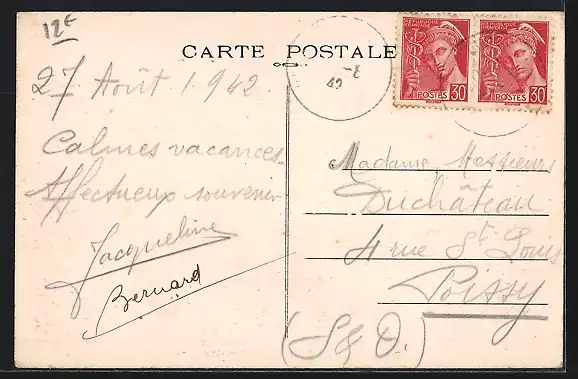 12€
CARTE POSTALE
27 Août 1942
Calmes vacances.
Affectueux souvenir
Jacqueline
Bernard
-8
42
RÉPUBLIQUE FRANÇAISE
POSTES 30
RÉPUBLIQUE FRANÇAISE
POSTES 30
Madame, Messieurs
Duchâteau
4 rue St Louis
Poissy
(S & O.)